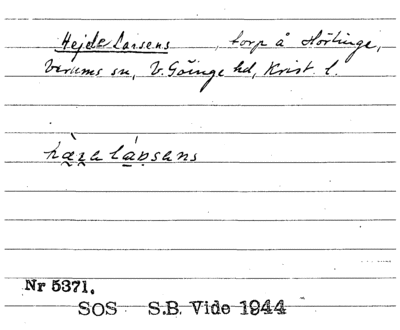 Hejde Larsens, torp å Hörlinge,
Verums sn, V. Göinge hd, Krist. l.
Nr 5371.
SOS S.B. Vide 1944